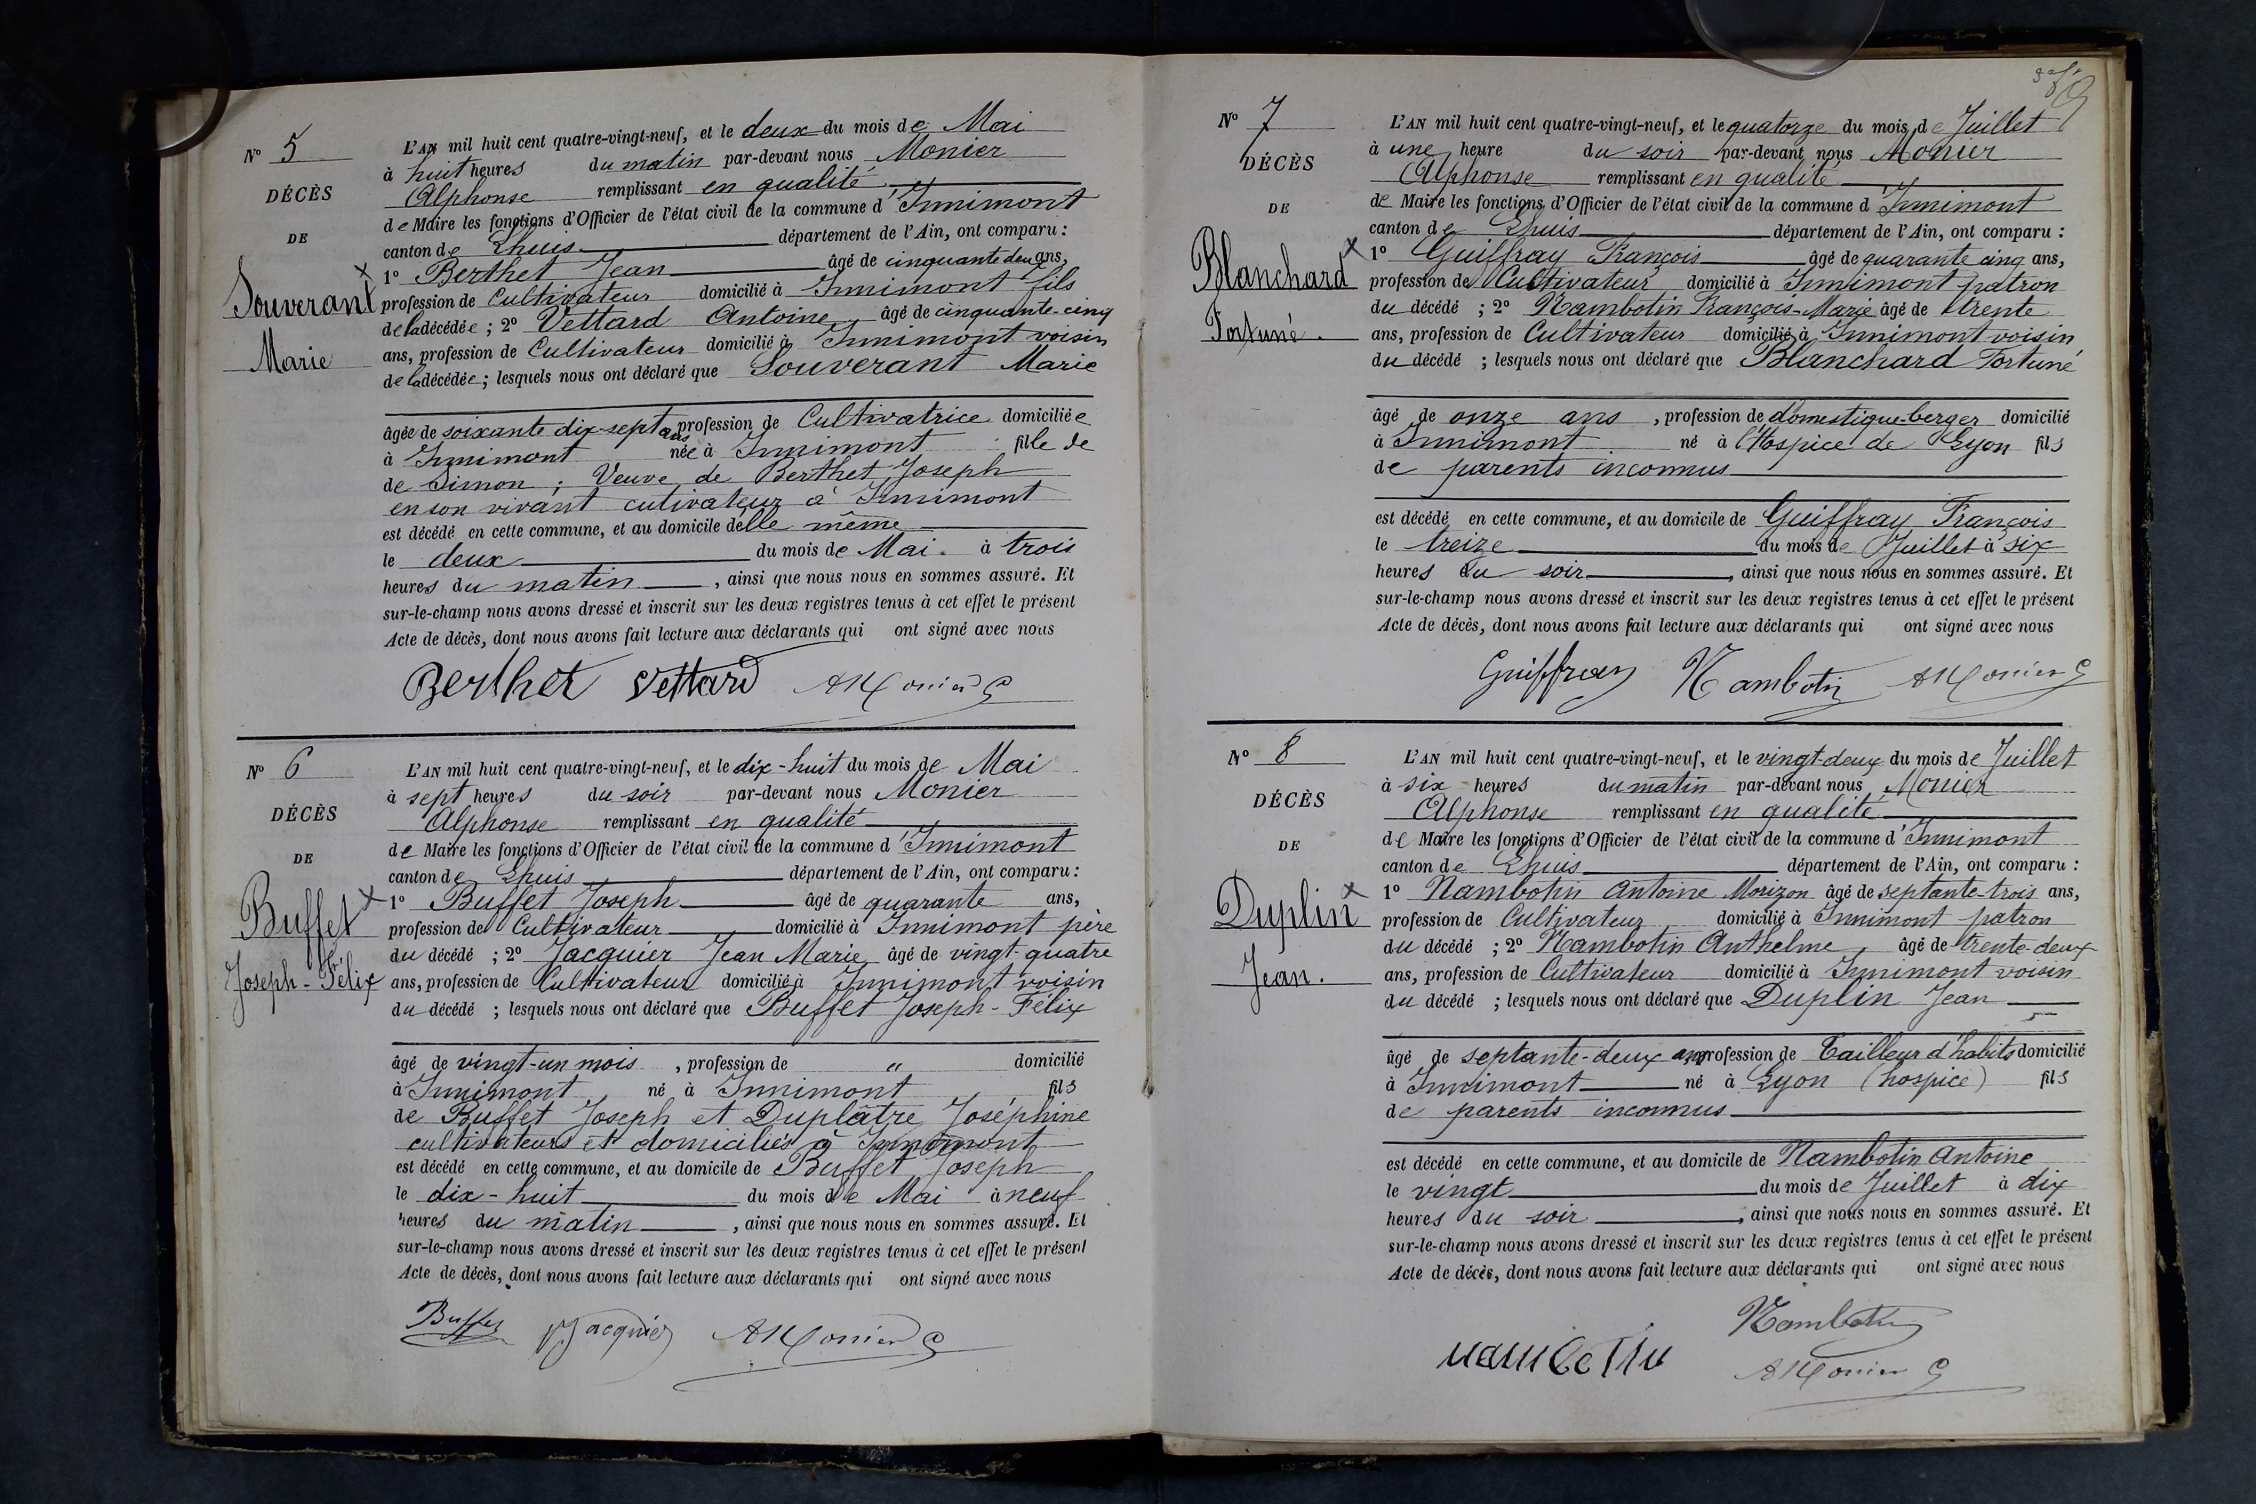 N° 5
DÉCÈS
DE
Souverant
Marie
L'AN mil huit cent quatre-vingt-neuf, et le deux du mois de Mai
à huit heures du matin par-devant nous Monier
Alphonse remplissant en qualité
de Maire les fonctions d'Officier de l'état civil de la commune d'Innimont
canton de Lhuis département de l'Ain, ont comparu :
1° Berthet Jean âgé de cinquante deux ans,
profession de Cultivateur domicilié à Innimont fils
de la décédée ; 2° Vettard Antoine âgé de cinquante-cinq
ans, profession de Cultivateur domicilié à Innimont voisin
de la décédée ; lesquels nous ont déclaré que Souverant Marie
âgée de soixante dix-sept ans profession de Cultivatrice domiciliée
à Innimont née à Innimont fille de
de Simon ; Veuve de Berthet Joseph
en son vivant cutivateur à Innimont
est décédé en cette commune, et au domicile delle même
le deux du mois de Mai à trois
heures du matin, ainsi que nous nous en sommes assuré. Et
sur-le-champ nous avons dressé et inscrit sur les deux registres tenus à cet effet le présent
Acte de décès, dont nous avons fait lecture aux déclarants qui ont signé avec nous
Berthet Vettard AMonier
N° 6
DÉCÈS
DE
Buffet
Joseph-Félix
L'AN mil huit cent quatre-vingt-neuf, et le dix-huit du mois de Mai
à sept heures du soir par-devant nous Monier
Alphonse remplissant en qualité
de Maire les fonctions d'Officier de l'état civil de la commune d'Innimont
canton de Lhuis département de l'Ain, ont comparu :
1° Buffet Joseph âgé de quarante ans,
profession de Cultivateur domicilié à Innimont père
du décédé ; 2° Jacquier Jean Marie âgé de vingt-quatre
ans, profession de Cultivateur domicilié à Innimont voisin
du décédé ; lesquels nous ont déclaré que Buffet Joseph-Félix
âgé de vingt-un mois, profession de " domicilié
à Innimont né à Innimont fils
de Buffet Joseph et Duplâtre Joséphine
cultivateurs et domiciliés à Innimont
est décédé en cette commune, et au domicile de Buffet Joseph
le dix-huit du mois de Mai à neuf
heures du matin, ainsi que nous nous en sommes assuré. Et
sur-le-champ nous avons dressé et inscrit sur les deux registres tenus à cet effet le présent
Acte de décès, dont nous avons fait lecture aux déclarants qui ont signé avec nous
Buffet Jacquier AMonier
N° 7
DÉCÈS
DE
Blanchard
Fortuné.
L'AN mil huit cent quatre-vingt-neuf, et le quatorze du mois de Juillet
à une heure du soir par-devant nous Monier
Alphonse remplissant en qualité
de Maire les fonctions d'Officier de l'état civil de la commune d'Innimont
canton de Lhuis département de l'Ain, ont comparu :
1° Guiffray François âgé de quarante cinq ans,
profession de Cultivateur domicilié à Innimont patron
du décédé ; 2° Nambotin François-Marie âgé de trente
ans, profession de Cultivateur domicilié à Innimont voisin
du décédé ; lesquels nous ont déclaré que Blanchard Fortuné
âgé de onze ans, profession de domestique-berger domicilié
à Innimont né à l'Hospice de Lyon fils
de parents inconnus
est décédé en cette commune, et au domicile de Guiffray François
le treize du mois de Juillet à six
heures du soir, ainsi que nous nous en sommes assuré. Et
sur-le-champ nous avons dressé et inscrit sur les deux registres tenus à cet effet le présent
Acte de décès, dont nous avons fait lecture aux déclarants qui ont signé avec nous
Guiffray Nambotin AMonier
N° 8
DÉCÈS
DE
Duplin
Jean.
L'AN mil huit cent quatre-vingt-neuf, et le vingt-deux du mois de Juillet
à six heures du matin par-devant nous Monier
Alphonse remplissant en qualité
de Maire les fonctions d'Officier de l'état civil de la commune d'Innimont
canton de Lhuis département de l'Ain, ont comparu :
1° Nambotin Antoine Morizon âgé de septante-trois ans,
profession de Cultivateur domicilié à Innimont patron
du décédé ; 2° Nambotin Anthelme âgé de trente-deux
ans, profession de Cultivateur domicilié à Innimont voisin
du décédé ; lesquels nous ont déclaré que Duplin Jean
âgé de septante-deux ans profession de Tailleur d'habits domicilié
à Innimont né à Lyon (hospice) fils
de parents inconnus
est décédé en cette commune, et au domicile de Nambotin Antoine
le vingt du mois de Juillet à dix
heures du soir, ainsi que nous nous en sommes assuré. Et
sur-le-champ nous avons dressé et inscrit sur les deux registres tenus à cet effet le présent
Acte de décès, dont nous avons fait lecture aux déclarants qui ont signé avec nous
Nambotin
nambotin
AMonier